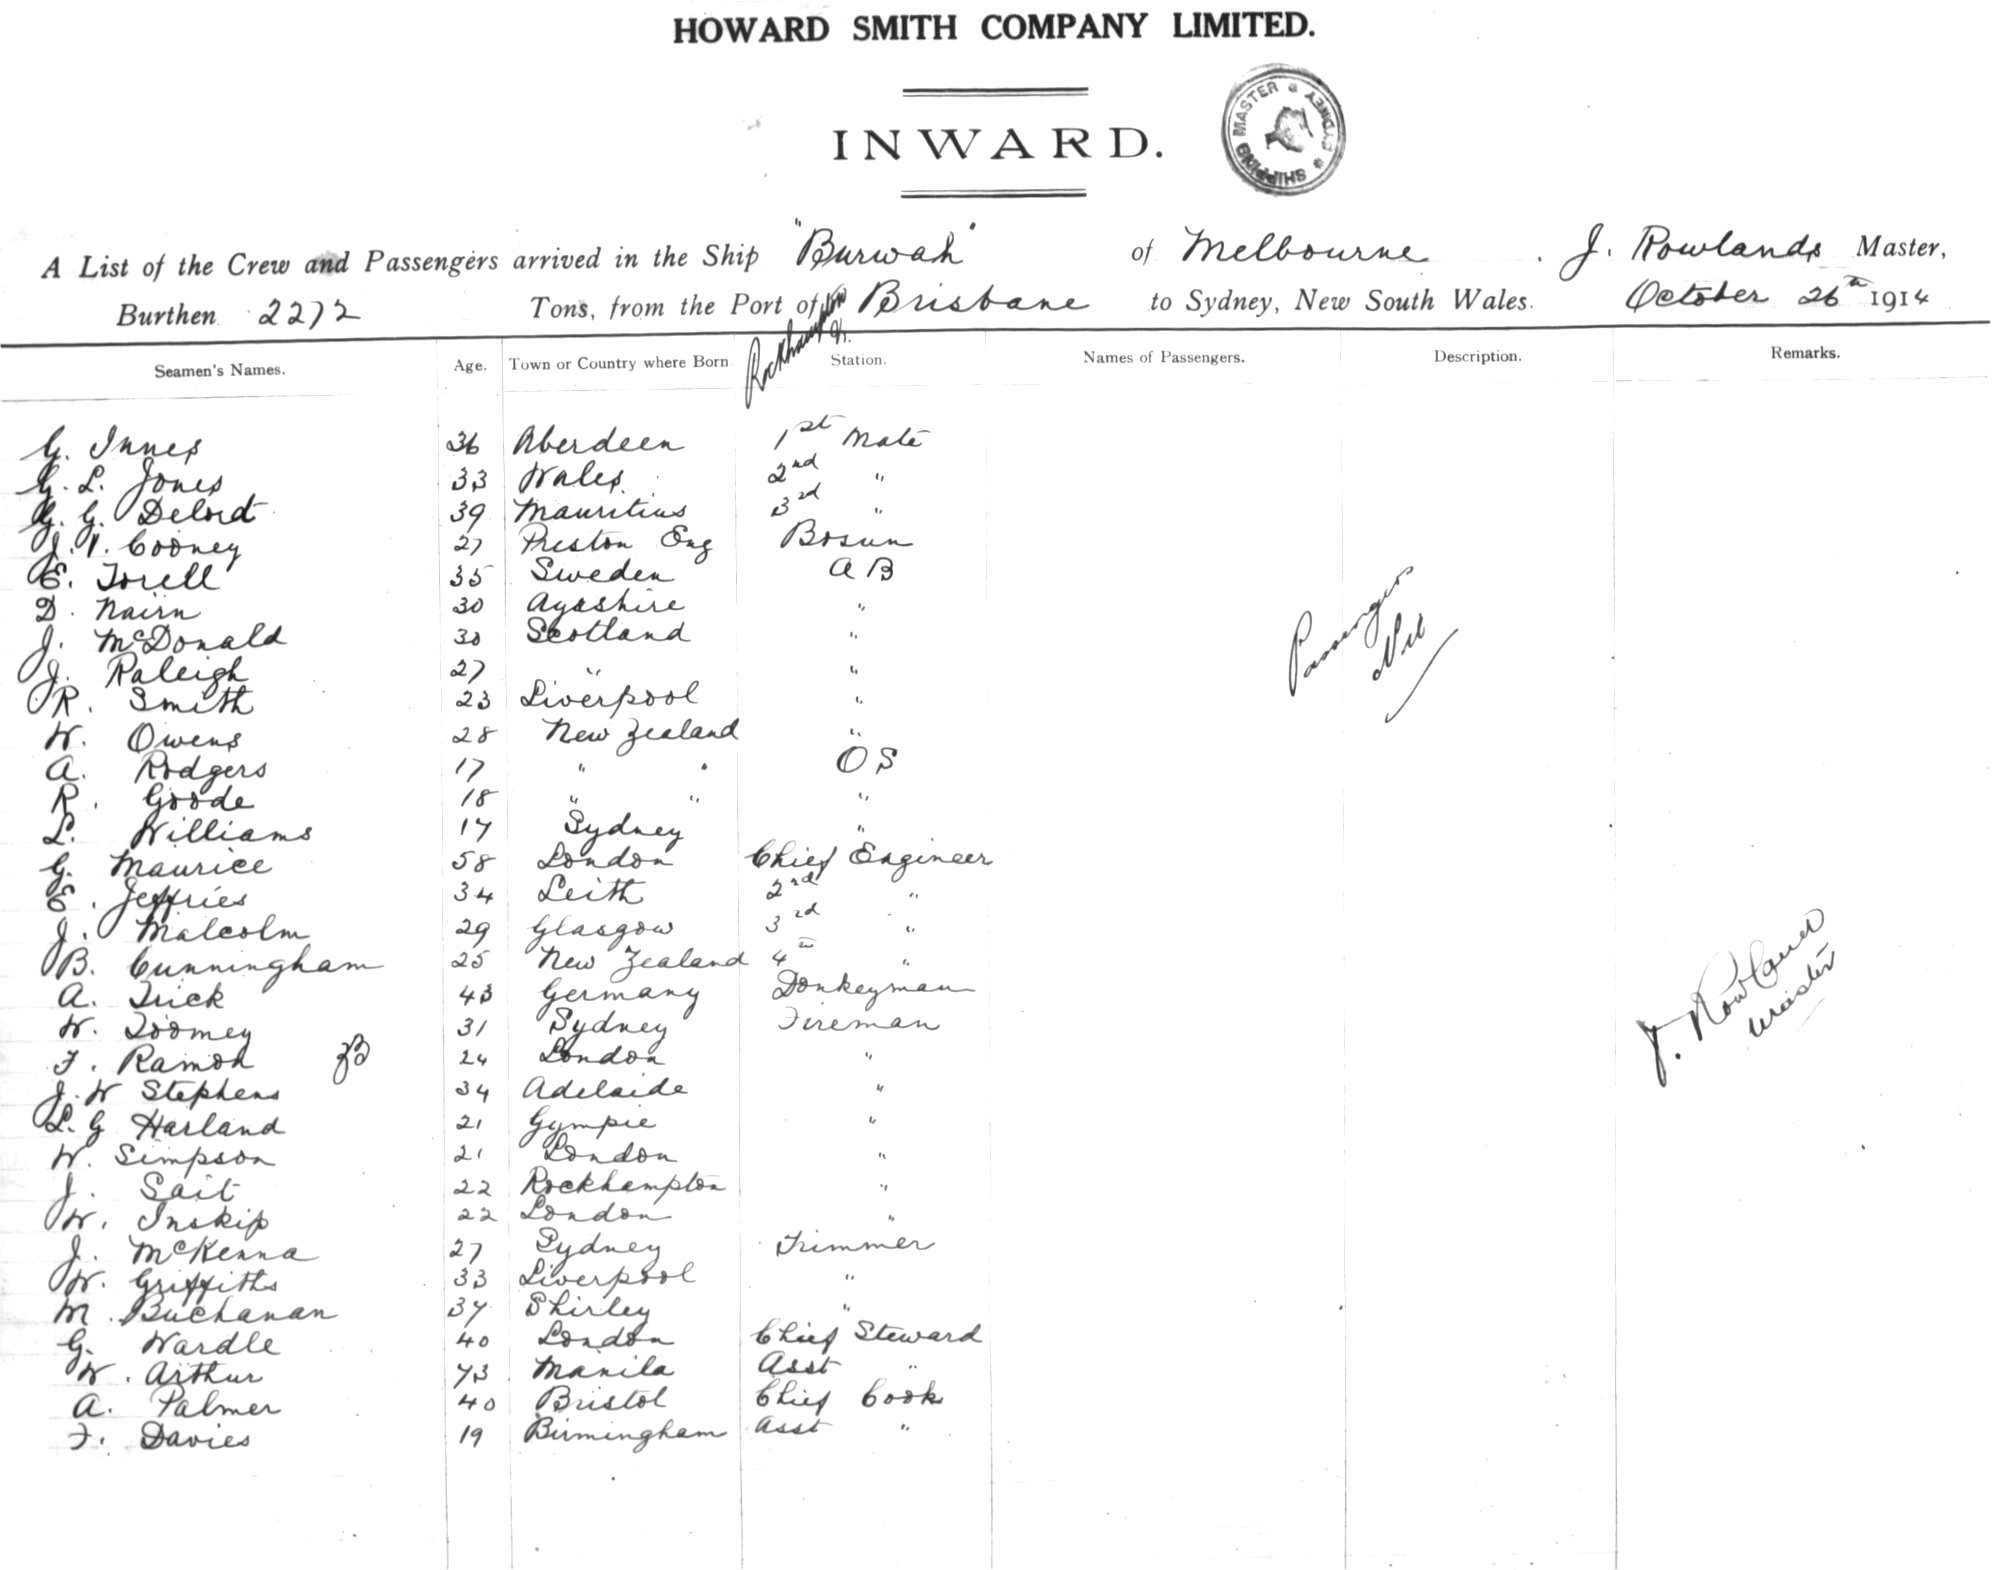 HOWARD SMITH COMPANY LIMITED.
INWARD.
SHIPPING MASTER SYDNEY
A List of the Crew and Passengers arrived in the Ship "Burwah" of Melbourne. J. Rowlands Master,
Burthen 2272 Tons, from the Port of Rockhampton & Brisbane to Sydney, New South Wales. October 26th 1914
Seamen's Names. Age. Town or Country where Born Station. Names of Passengers. Description. Remarks.
G. Innes 36 Aberdeen 1st Mate
G. L. Jones 33 Wales 2nd "
G. G. Delord 39 Mauritius 3rd "
J. Cooney 27 Preston Eng Bosun
E. Torell 35 Sweden A B
D. Nairn 30 Ayrshire "
J. McDonald 30 Scotland "
J. Raleigh 27 " "
R. Smith 23 Liverpool "
W. Owens 28 New Zealand "
A. Rodgers 17 " " O S
R. Goode 18 " " "
L. Williams 17 Sydney "
G. Maurice 58 London Chief Engineer
E. Jeffries 34 Leith 2nd "
J. Malcolm 29 Glasgow 3rd "
B. Cunningham 25 New Zealand 4th "
A. Trick 43 Germany Donkeyman
W. Toomey 31 Sydney Fireman
F. Ramon 24 London "
J. W Stephens 34 Adelaide "
L. G Harland 21 Gympie "
W. Simpson 21 London "
J. Sait 22 Rockhampton "
W. Inskip 22 London "
J. McKenna 27 Sydney Trimmer
W. Griffiths 33 Liverpool "
M. Buchanan 37 Shirley "
G. Wardle 40 London Chief Steward
W. Arthur 73 Manila Asst "
A. Palmer 40 Bristol Chief Cook
F. Davies 19 Birmingham Asst "
Passengers
Nil
J. Rowlands
Master